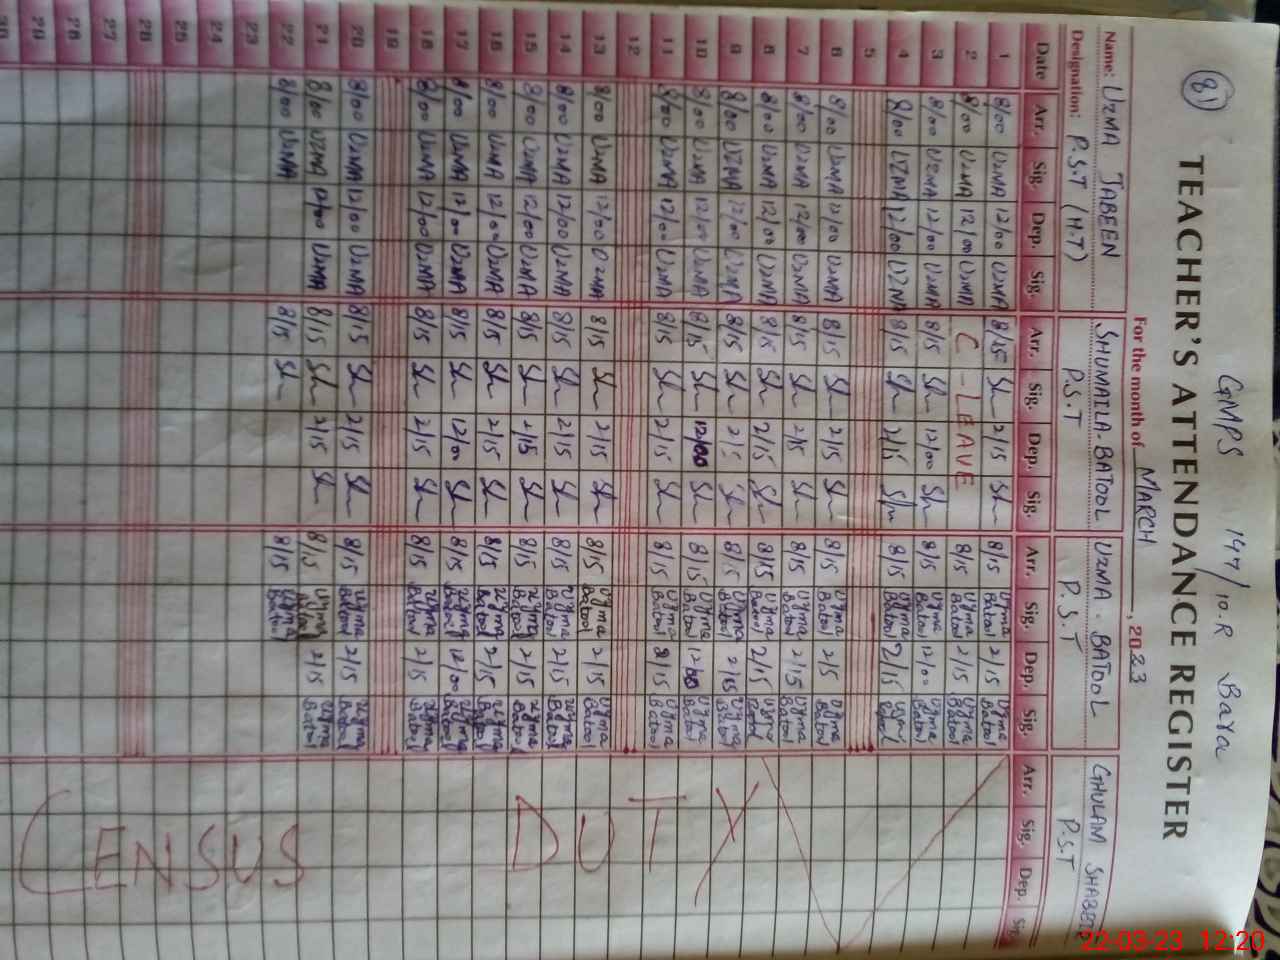 81
GMPS 147/10.R Baya
TEACHER'S ATTENDANCE REGISTER
For the month of MARCH, 2023
Name: UZMA JABEEN SHUMAILA.BATOOL UZMA.BATOOL GHULAM
Designation: P.S.T (H.T) P.S.T P.S.T P.S.T
Date Arr. Sig. Dep. Sig. Arr. Sig. Dep. Sig. Arr. Sig. Dep. Sig. Arr. Sig. Dep. Sig.
1 8/00 UZMA 12/00 UZMA Sh 2/15 Sh 8/15 Uzma Batool 2/15 Uzma Batool
2 8/00 UZMA 12/00 UZMA C-LEAVE 8/15 Uzma Batool 2/15 Uzma Batool
3 8/00 UZMA 12/00 UZMA 8/15 Sh 12/00 Sh 8/15 Uzma Batool 12/00 Uzma Batool
4 8/00 UZMA 12/00 UZMA 8/15 Sh 2/15 Sh 8/15 Uzma Batool 2/15 Uzma Batool
5
6 8/00 UZMA 12/00 UZMA 8/15 Sh 2/15 Sh 8/15 Uzma Batool 2/15 Uzma Batool
7 8/00 UZMA 12/00 UZMA 8/15 Sh 2/15 Sh 8/15 Uzma Batool 2/15 Uzma Batool
8 8/00 UZMA 12/00 UZMA 8/15 Sh 2/15 Sh 8/15 Uzma Batool 2/15 Uzma Batool
9 8/00 UZMA 12/00 UZMA 8/15 Sh 2/15 Sh 8/15 Uzma Batool 2/15 Uzma Batool
10 8/00 UZMA 12/00 UZMA 8/15 Sh 12/00 Sh 8/15 Uzma Batool 12/00 Uzma Batool
11 8/00 UZMA 12/00 UZMA 8/15 Sh 2/15 Sh 8/15 Uzma Batool 2/15 Uzma Batool
12
13 8/00 UZMA 12/00 UZMA 8/15 Sh 2/15 Sh 8/15 Uzma Batool 2/15 Uzma Batool
14 8/00 UZMA 12/00 UZMA 8/15 Sh 2/15 Sh 8/15 Uzma Batool 2/15 Uzma Batool
15 8/00 UZMA 12/00 UZMA 8/15 Sh 2/15 Sh 8/15 Uzma Batool 2/15 Uzma Batool
16 8/00 UZMA 12/00 UZMA 8/15 Sh 2/15 Sh 8/15 Uzma Batool 2/15 Uzma Batool
17 8/00 UZMA 12/00 UZMA 8/15 Sh 12/00 Sh 8/15 Uzma Batool 12/00 Uzma Batool
18 8/00 UZMA 12/00 UZMA 8/15 Sh 2/15 Sh 8/15 Uzma Batool 2/15 Uzma Batool
19
20 8/00 UZMA 12/00 UZMA 8/15 Sh 2/15 Sh 8/15 Uzma Batool 2/15 Uzma Batool
21 8/00 UZMA 12/00 UZMA 8/15 Sh 2/15 Sh 8/15 Uzma Batool 2/15 Uzma Batool
22 8/00 UZMA 8/15 Sh 8/15 Uzma Batool
23
24
25
26
27
28
29
30
CENSUS DUTY
22-03-23 12:20